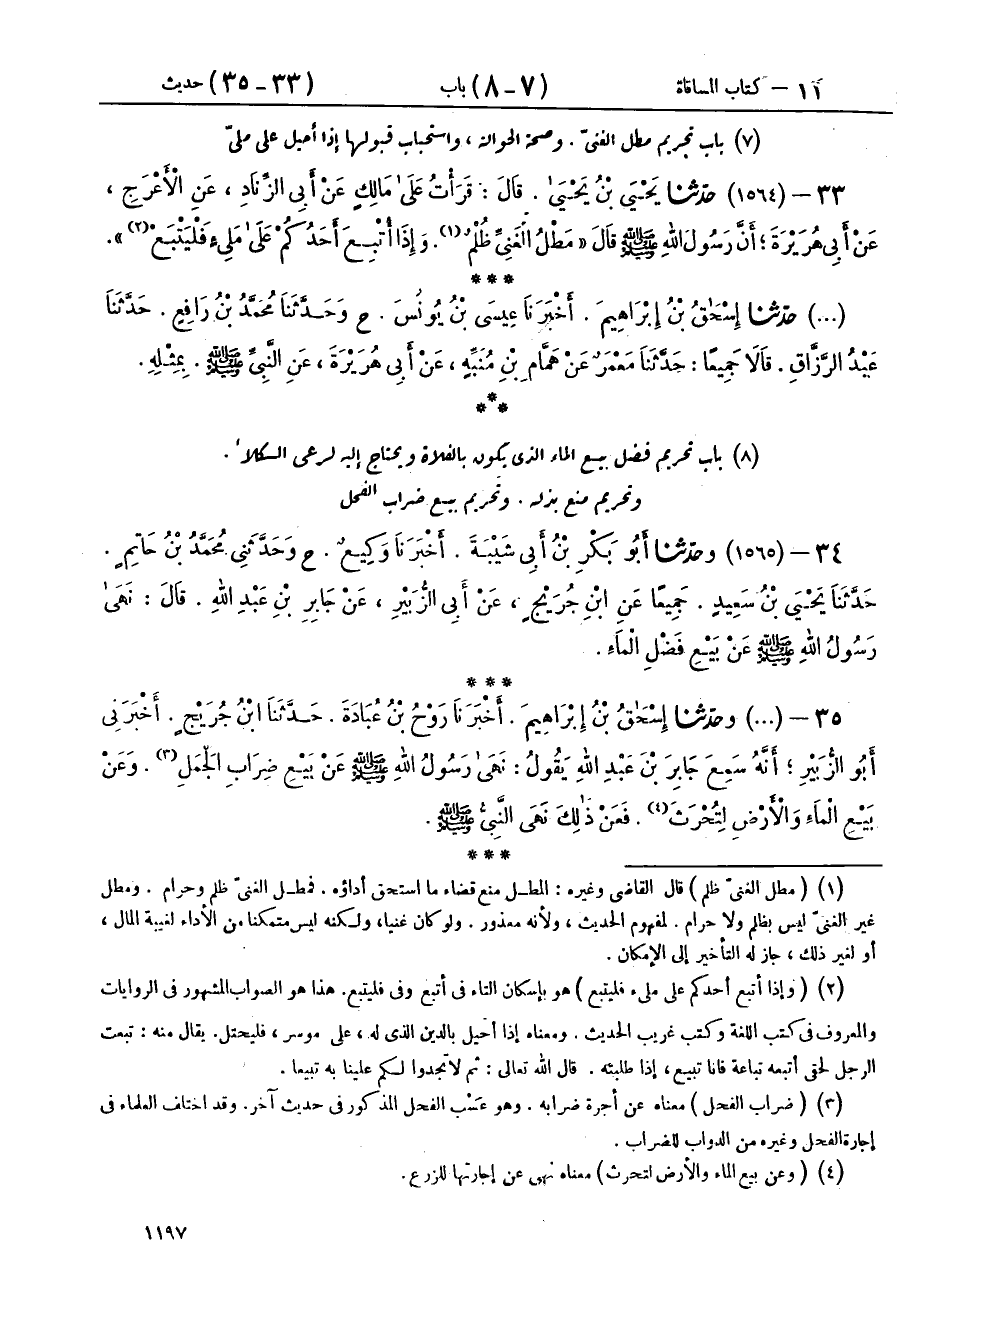 ٢٢ – كتاب المساقاة (٧-٨) باب (٣٣-٣٥) حديث
(٧) باب تحريم مطل الغنىّ . وصحة الحوالة ، واستحباب قبولها إذا أحيل على ملىّ
٣٣ – (١٥٦٤) حدّثنا يَحْيَىٰ بْنُ يَحْيَىٰ . قَالَ : قَرَأْتُ عَلَىٰ مَالِكٍ عَنْ أَبِي الزِّنَادِ ، عَنِ الْأَعْرَجِ ،
عَنْ أَبِي هُرَيْرَةَ ؛ أَنَّ رَسُولَ اللهِ ﷺ قَالَ « مَطْلُ الْغَنِيِّ ظُلْمٌ(١). وَإِذَا أُتْبِعَ أَحَدُكُمْ عَلَىٰ مَلِيءٍ فَلْيَتْبَعْ(٢) ».
***
(...) حدّثنا إِسْحَٰقُ بْنُ إِبْرَاهِيمَ . أَخْبَرَنَا عِيسَى بْنُ يُونُسَ . ح وَحَدَّثَنَا مُحَمَّدُ بْنُ رَافِعٍ . حَدَّثَنَا
عَبْدُ الرَّزَّاقِ . قَالَا جَمِيعًا : حَدَّثَنَا مَعْمَرٌ عَنْ هَمَّامِ بْنِ مُنَبِّهٍ ، عَنْ أَبِي هُرَيْرَةَ ، عَنِ النَّبِيِّ ﷺ . بِمِثْلِهِ .
***
(٨) باب تحريم فضل بيع الماء الذى يكون بالفلاة ويحتاج إليه لرعى الكلأ .
وتحريم منع بذله . وتحريم بيع ضراب الفحل
٣٤ – (١٥٦٥) وحدّثنا أَبُو بَكْرِ بْنُ أَبِي شَيْبَةَ . أَخْبَرَنَا وَكِيعٌ . ح وَحَدَّثَنِي مُحَمَّدُ بْنُ حَاتِمٍ .
حَدَّثَنَا يَحْيَى بْنُ سَعِيدٍ . جَمِيعًا عَنِ ابْنِ جُرَيْجٍ ، عَنْ أَبِي الزُّبَيْرِ ، عَنْ جَابِرِ بْنِ عَبْدِ اللهِ . قَالَ : نَهَىٰ
رَسُولُ اللهِ ﷺ عَنْ بَيْعِ فَضْلِ الْمَاءِ .
***
٣٥ – (...) وحدّثنا إِسْحَٰقُ بْنُ إِبْرَاهِيمَ . أَخْبَرَنَا رَوْحُ بْنُ عُبَادَةَ . حَدَّثَنَا ابْنُ جُرَيْجٍ . أَخْبَرَنِي
أَبُو الزُّبَيْرِ ؛ أَنَّهُ سَمِعَ جَابِرَ بْنَ عَبْدِ اللهِ يَقُولُ : نَهَىٰ رَسُولُ اللهِ ﷺ عَنْ بَيْعِ ضِرَابِ الْجَمَلِ(٣) . وَعَنْ
بَيْعِ الْمَاءِ وَالْأَرْضِ لِتُحْرَثَ(٤) . فَعَنْ ذَٰلِكَ نَهَى النَّبِيُّ ﷺ .
***
(١) ( مطل الغنىّ ظلم ) قال القاضى وغيره : المطل منع قضاء ما استحق أداؤه . فمطل الغنىّ ظلم وحرام . ومطل
غير الغنىّ ليس بظلم ولا حرام . لمفهوم الحديث ، ولأنه معذور . ولو كان غنيا، ولكنه ليس متمكنا من الأداء لغيبة المال ،
أو لغير ذلك ، جاز له التأخير إلى الإمكان .
(٢) ( وإذا أتبع أحدكم على ملىء فليتبع ) هو بإسكان التاء فى أتبع وفى فليتبع. هذا هو الصواب المشهور فى الروايات
والمعروف فى كتب اللغة وكتب غريب الحديث . ومعناه إذا أحيل بالدين الذى له ، على موسر ، فليحتل. يقال منه : تبعت
الرجل لحقى أتبعه تباعة فأنا تبيع، إذا طلبته . قال الله تعالى : ثم لا تجدوا لكم علينا به تبيعا .
(٣) ( ضراب الفحل ) معناه عن أجرة ضرابه . وهو عَسْب الفحل المذكور فى حديث آخر. وقد اختلف العلماء فى
إجارة الفحل وغيره من الدواب للضراب .
(٤) ( وعن بيع الماء والأرض لتحرث ) معناه نهى عن إجارتها للزرع .
١١٩٧